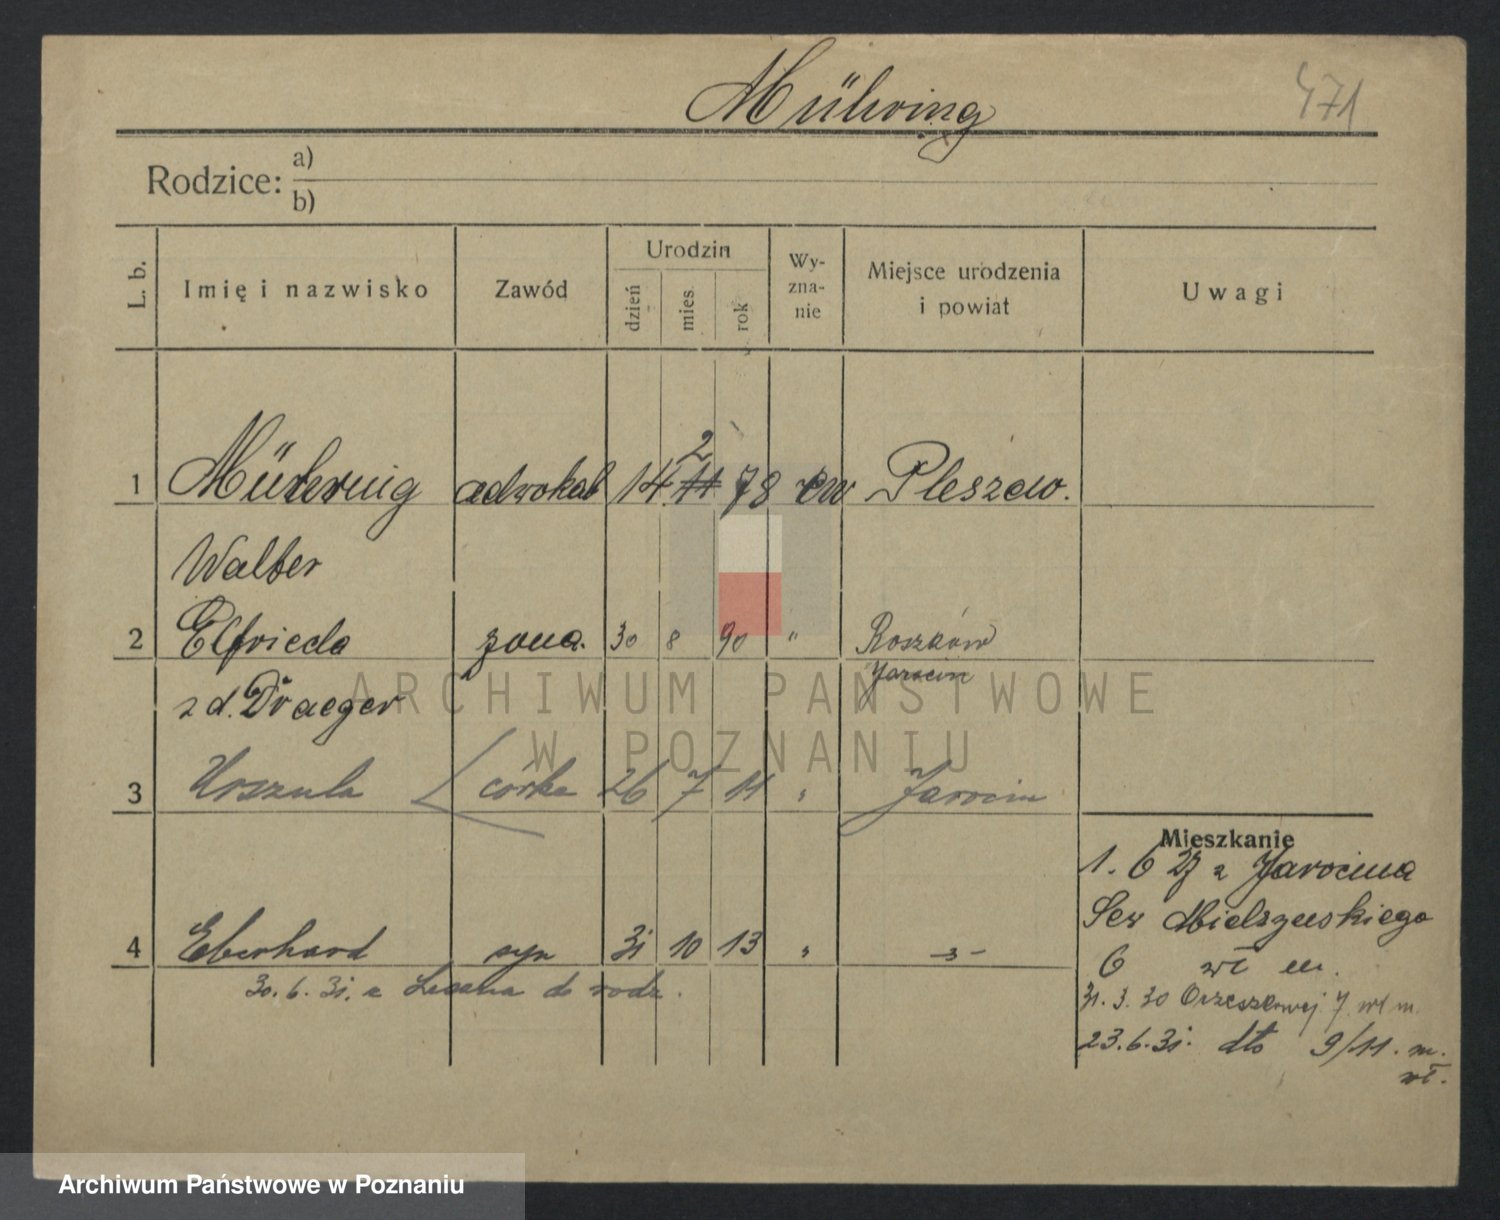 Mühring
471
Rodzice:
a)
b)
L. b.
Imię i nazwisko
Zawód
Urodzin
dzień
mies.
rok
Wy-
zna-
nie
Miejsce urodzenia
i powiat
Uwagi
2
1 Mühring adwokat 14 11 78 ew Pleszew.
Walter
2 Elfrieda żona. 30 8 90 " Roszków
z d. Draeger Jarocin
ARCHIWUM PAŃSTWOWE
W POZNANIU
3 Urszula córka 26 7 11 " Jarocin
Mieszkanie
1. 6 27 z Jarocina
Sew Mielżyńskiego
4 Eberhard syn 31 10 13 " -"-
6 wł m.
30. 6. 31. z do rodz.
31. 3. 30 Orzeszkowej 7 wł m.
23. 6. 31. dto 9/11. m.
wł.
Archiwum Państwowe w Poznaniu